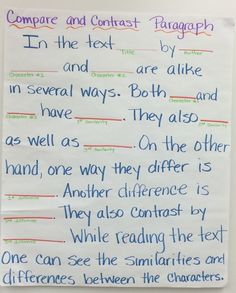 Compare and Contrast Paragraph
In the text ____ by ____
Title Author
____ and ____ are alike
Character #1 Character #2
in several ways. Both ____ and
Character #1
____ have ____. They also ____
Character #2 1st similarity 2nd similarity
as well as ____. On the other
3rd similarity
hand, one way they differ is
____. Another difference is
1st difference
____. They also contrast by
2nd difference
____. While reading the text
3rd difference
One can see the similarities and
differences between the characters.